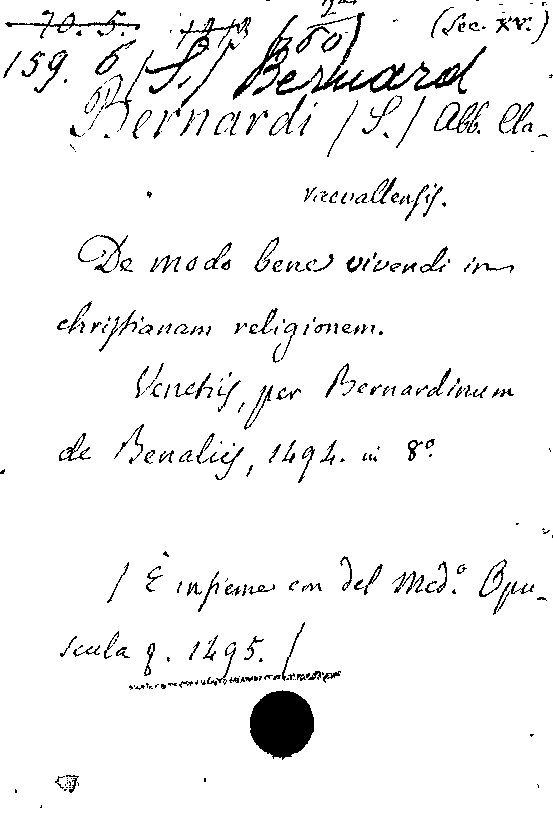 70. 5. (Sec. XV.)
159. 6 /S./ Bernard
Bernardi /S./ Abb. Cla-
raevallensis.
De modo bene vivendi in
christianam religionem.
Venetiis, per Bernardinum
de Benaliis, 1494. in 8º
/ È insieme con del Medº. Opu-
scula q. 1495. /